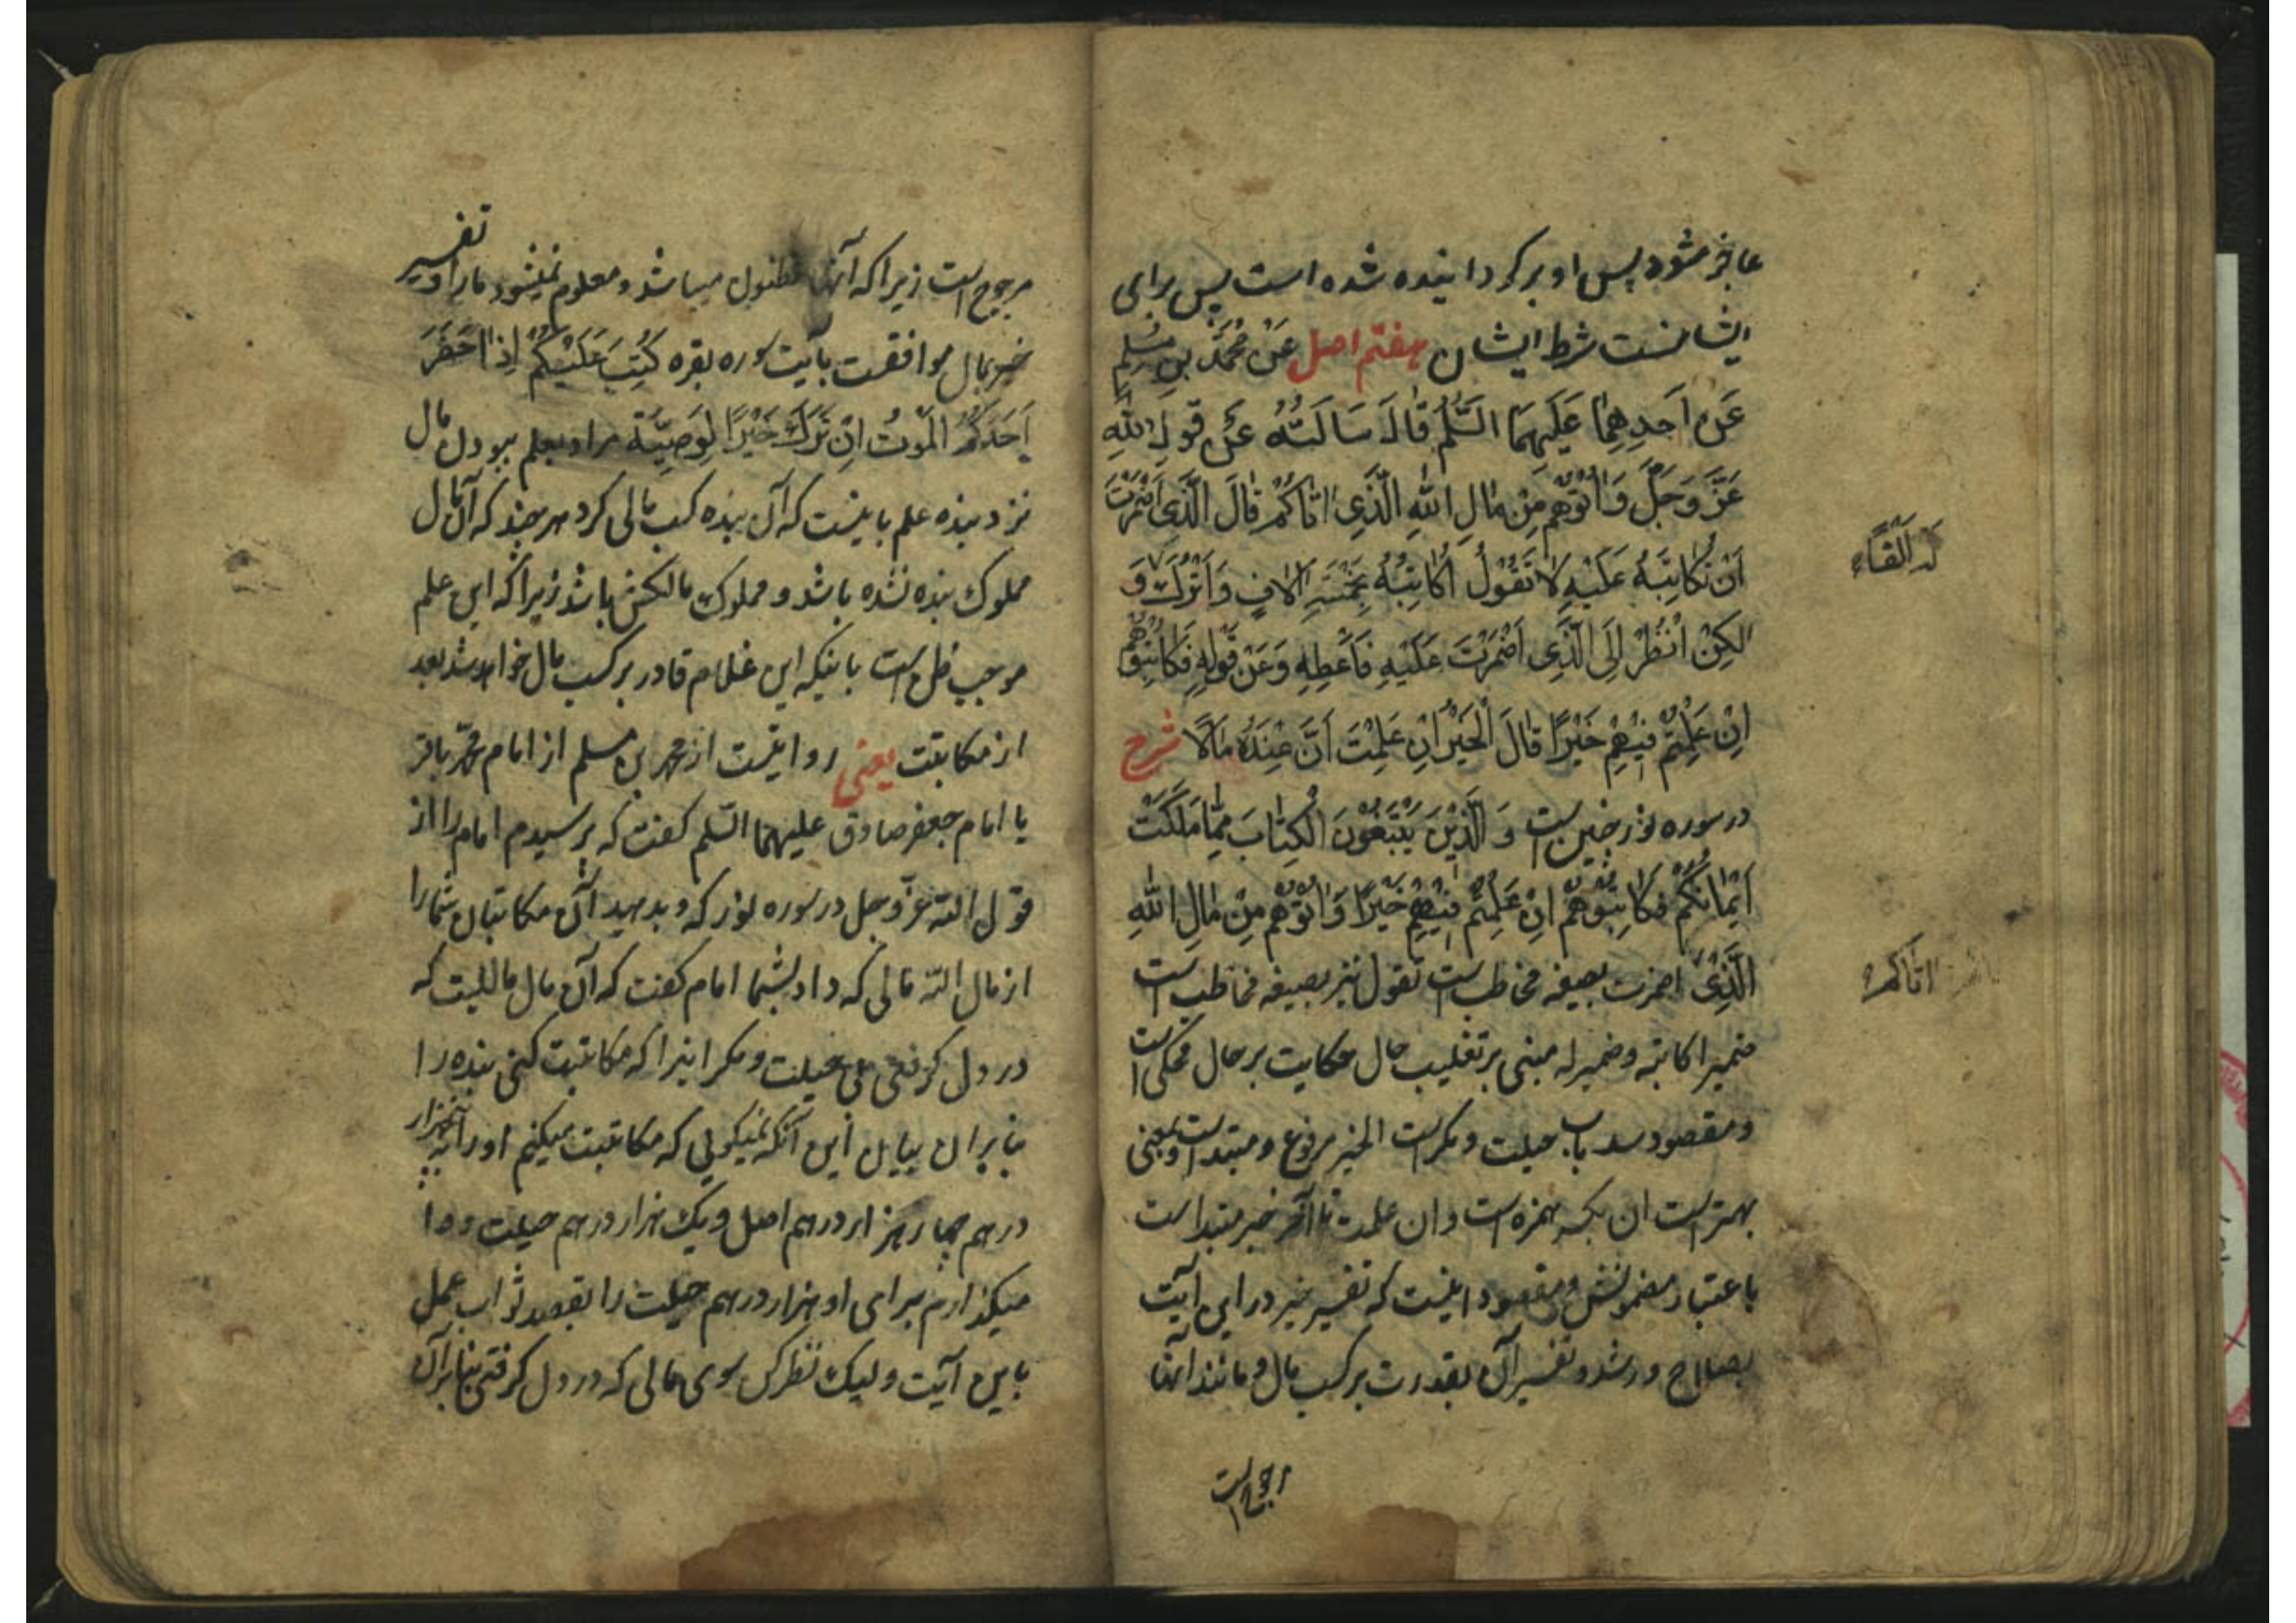 عاجز شود پس او برگردانیده شده است پس برای
ایشانست شرط ایشان هفتم اصل عَنْ مُحَمَّدِ بنِ مُسْلِمٍ
عَن اَحَدِهِمٰا عَلَیهِمَا السَّلٰمُ قٰالَ سَالَتُهُ عَنْ قَولِ اللهِ
عَزَّ وَجَلَّ وَاٰتُوهُم مِنْ مٰالِ اللهِ الَّذِی اٰتٰاکُمْ قٰالَ الَّذِی اَضْمَرْتَ
اَنْ تُکٰاتِبَهُ عَلَیْهِ لاٰ تَقُوْلُ اُکٰاتِبُهُ بِخَمْسَةِ اٰلافٍ وَاَتْرُکُ وَ
لٰکِنْ اُنْظُرْ اِلَی الَّذِی اَضْمَرْتَ عَلَیْهِ فَاَعْطِهِ وَعَنْ قَوْلِهِ فَکٰاتِبُوهُمْ
اِنْ عَلِمْتُمْ فِیْهِمْ خَیْرًا قٰالَ الْخَیْرُ اِنْ عَلِمْتَ اَنَّ عِنْدَهُ مٰالًا شرح
در سوره نور چنین است وَ الَّذِیْنَ یَبْتَغُوْنَ الْکِتٰابَ مِمّٰا مَلَکَتْ
اَیْمٰانُکُمْ فَکٰاتِبُوْهُمْ اِنْ عَلِمْتُمْ فِیْهِمْ خَیْرًا وَاٰتُوْهُمْ مِنْ مٰالِ اللهِ
الَّذِیْ اضمرت بصیغه مخاطب است تقول نیز بصیغه مخاطب است
ضمیر اکاتبه و ضمیر له مبنی بر تغلیب حال حکایت بر حال محکی است
و مقصود سد باب حیلت و مکر است الخیر مرفوع و مبتداست و بمعنی
بهتر است ان بکسر همزه است و ان علمت تا آخر خبر مبتدا است
باعتبار مضمونش و مقصود اینست که تفسیر خیر در این آیت
بصلاح و رشد و تفسیر آن بقدرت بر کسب مال و مانند آنها
رجوح است
لَهُ اَلْفًاء
اٰتٰاکُمْ
مرجوح است زیرا که آنها مظنون میباشد و معلوم نمیشود ما را و تفسیر
خیر بمال موافقست بآیت سوره بقره کُتِبَ عَلَیْکُمْ اِذٰا حَضَرَ
اَحَدَکُمُ الْمَوْتُ اِنْ تَرَکَ خَیْرًا لوَصِیَّة مراد بعلم ببودن مال
نزد بنده علم باینست که آن بنده کسب مالی کرد هر چند که آن مال
مملوک بنده نشده باشد و مملوک مالکش باشد زیرا که این علم
موجب ظن است باینکه این غلام قادر بر کسب مال خواهد شد بعد
از مکاتبت یعنی روایتست از محمد بن مسلم از امام محمّد باقر
یا امام جعفر صادق علیهما السّلم گفت که پرسیدم امام را از
قول الله عزّ و جل در سوره نور که و بدهید آن مکاتبان شما را
از مال الله مالی که داد بشما امام گفت که آن مال مالیست که
در دل گرفتی بی حیلت و مکر اینرا که مکاتبت کنی بنده را
بنابران بیان این آنکه نمیگویی که مکاتبت میکنم او را به پنجهزار
درهم چهار هزار درهم اصل و یک هزار درهم حیلت و وا
میگذارم برای او هزار درهم حیلت را بقصد ثواب عمل
باین آیت و لیک نظر کن سوی مالی که در دل گرفتی بنابرآن